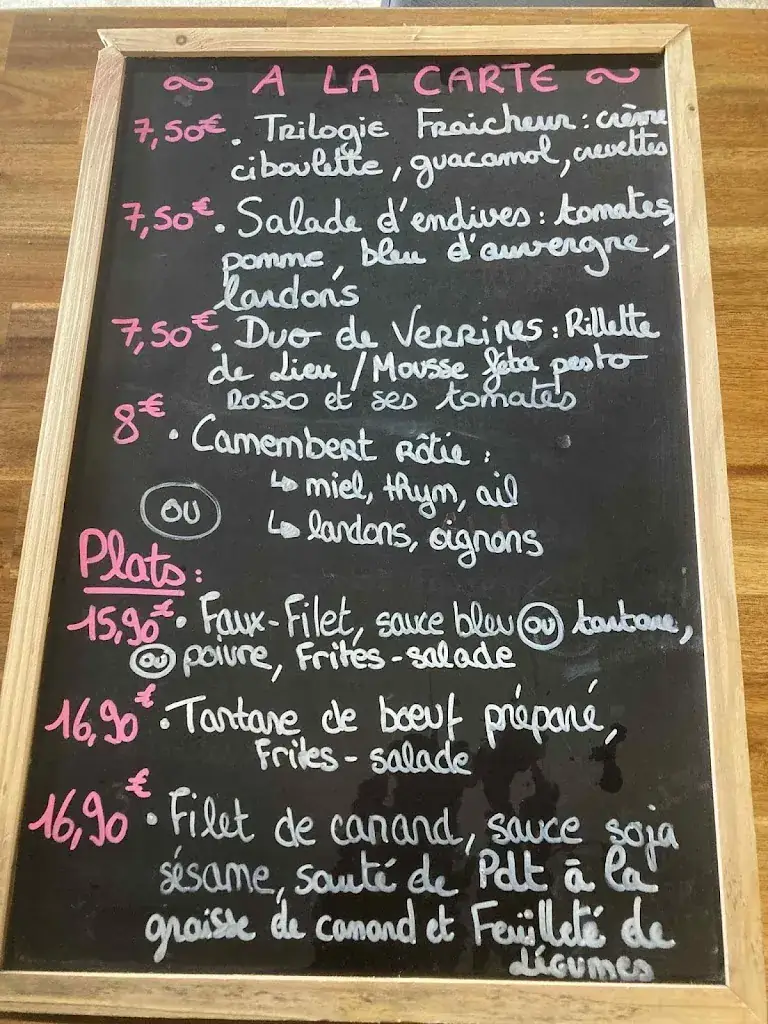 ~ A LA CARTE ~
7,50€ . Trilogie Fraicheur : crème
ciboulette, guacamol, crevettes
7,50€ . Salade d'endives : tomates,
pomme, bleu d'auvergne,
lardons
7,50€ . Duo de Verrines : Rillette
de Lieu / Mousse féta pesto
Rosso et ses tomates
8€ . Camembert rôtie :
↳ miel, thym, ail
OU ↳ lardons, oignons
Plats :
15,90€ . Faux-Filet, sauce bleu ou tartare,
ou poivre, Frites-salade
16,90€ . Tartare de bœuf préparé,
Frites - salade
16,90€ . Filet de canard, sauce soja
sésame, sauté de Pdt à la
graisse de canard et Feuilleté de
Légumes